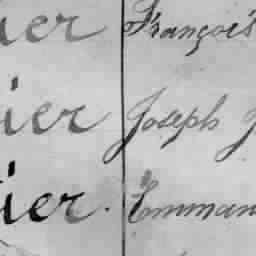 ier François
ier Joseph J
ier. Emman